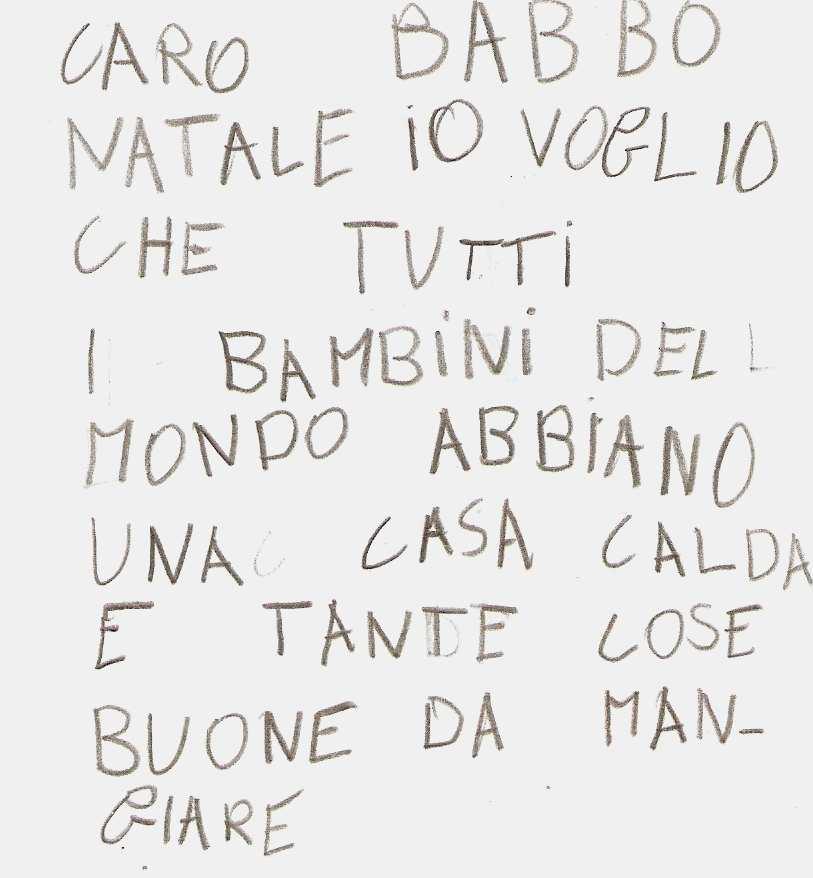 CARO BABBO
NATALE iO VOGLIO
CHE TUTTi
I BAMBiNi DEL L
MONDO ABBiANO
UNA CASA CALDA
E TANTE COSE
BUONE DA MAN-
GIARE